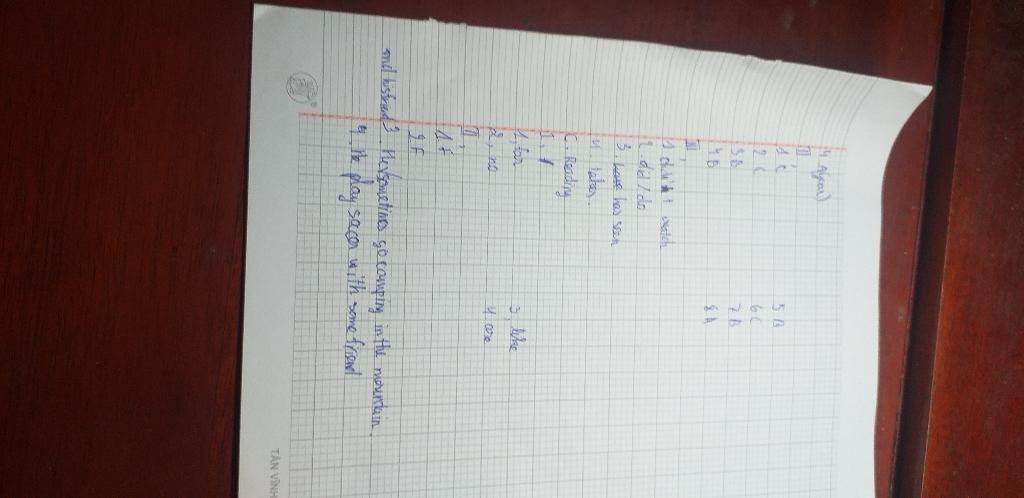 II,
1 C 5 B
2 C 6 C
3 B 7 B
4 B 8 A
III,
1 didn't watch
2 did / do
3. has seen
4. takes.
C. Reading
I.
1, for 3, like
2, no 4. are
II,
1 F
2 F
3 He sometimes go camping in the mountain.
4, He play soccer with some friend
TÂN VĨNH